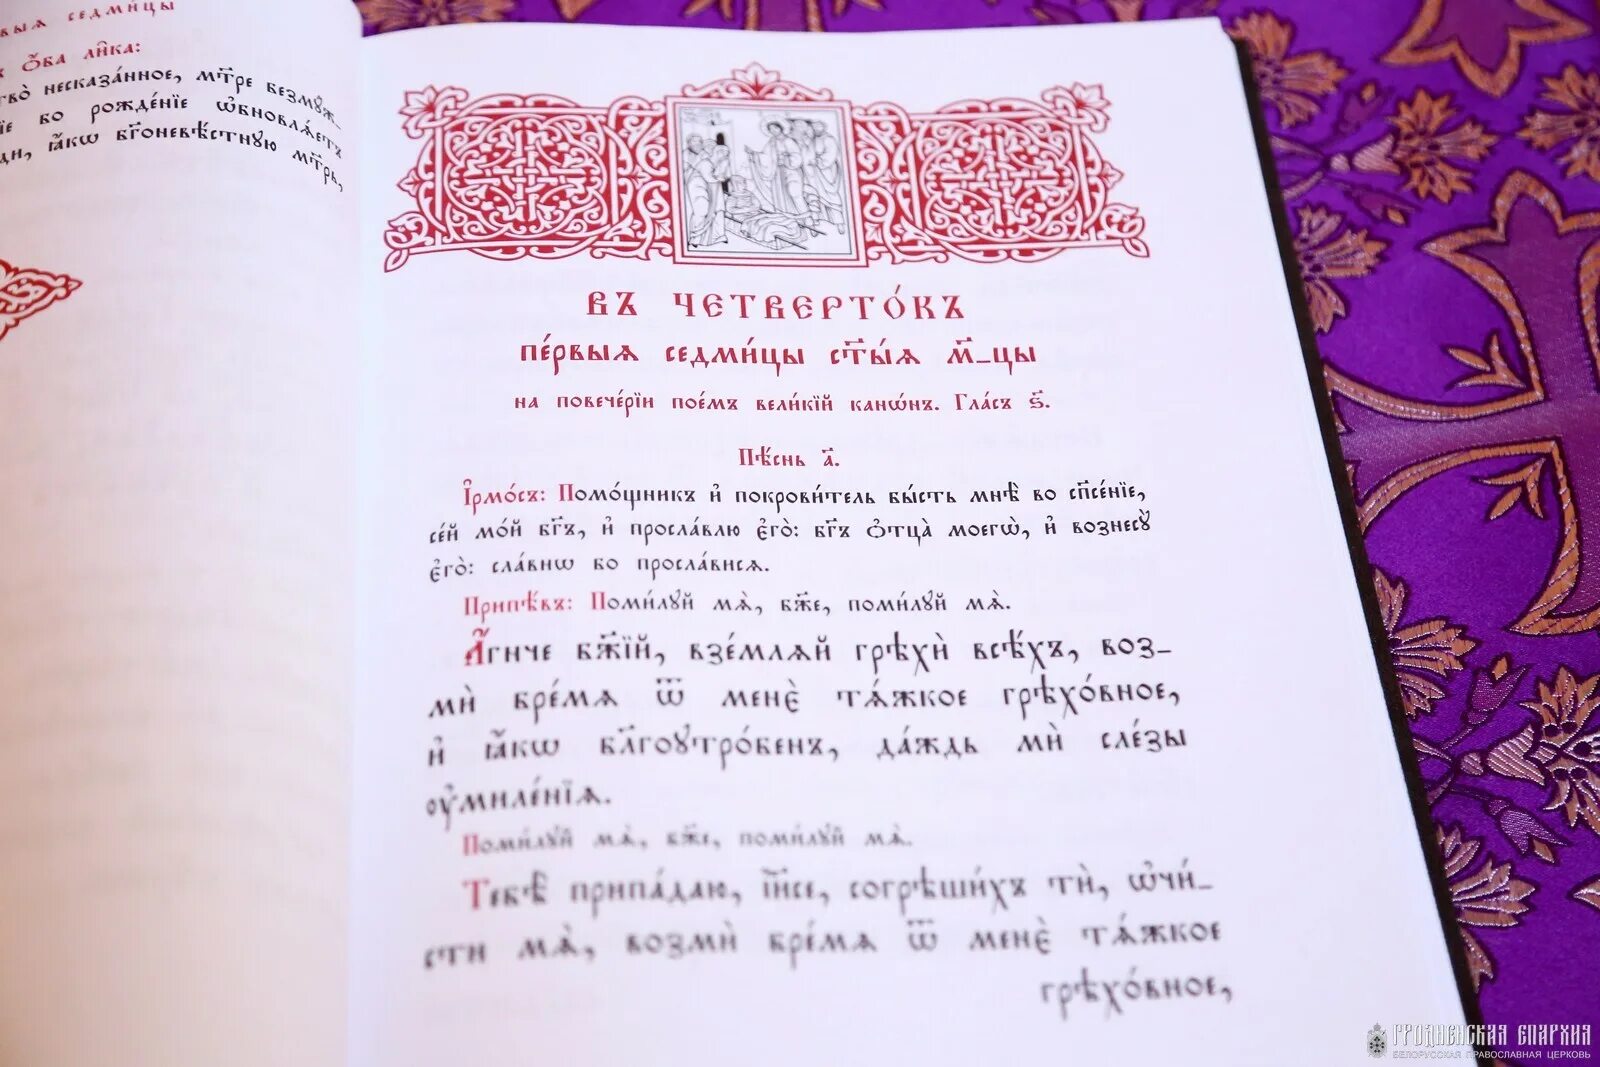 выѧ седми́цы
ѻ҆́ба ли̑ка:
несказа́нное, мт҃ре безмꙋ́ж_
бо рожде́нїе ѡ҆бновлѧ́етъ
ꙗ҆́кѡ бг҃оневѣ́стную мт҃рь,
Въ четверто́къ
пе́рвыѧ седми́цы ст҃ы́ѧ м҃_цы
на повече́рїи пое́мъ вели́кїй канѡ́нъ. Гла́съ ѕ҃.
Пѣ́снь а҃.
І҆рмо́съ: Помо́щникъ и҆ покрови́тель бы́сть мнѣ̀ во сп҃се́нїе,
се́й мо́й бг҃ъ, и҆ просла́влю є҆го̀: бг҃ъ ѻ҆тца̀ моегѡ̀, и҆ вознесꙋ̀
є҆го̀: сла́внѡ бо просла́висѧ.
Припѣ́въ: Поми́лꙋй мѧ̀, бж҃е, поми́лꙋй мѧ̀.
А҆́гнче бж҃їй, взе́млѧй грѣхѝ всѣ́хъ, воз_
мѝ бре́мѧ ѿ менє̀ тѧ́жкое грѣхо́вное,
и҆ ꙗ҆́кѡ бл҃гоꙋтро́бенъ, да́ждь мѝ сле́зы
ᲂу҆миле́нїѧ.
Поми́лꙋй мѧ̀, бж҃е, поми́лꙋй мѧ̀.
Тебѣ̀ припа́даю, і҆и҃се, согрѣши́хъ тѝ, ѡ҆чи́_
сти мѧ̀, возмѝ бре́мѧ ѿ менє̀ тѧ́жкое
грѣхо́вное,
ГРОДНЕНСКАЯ ЕПАРХИЯ
БЕЛОРУССКАЯ ПРАВОСЛАВНАЯ ЦЕРКОВЬ